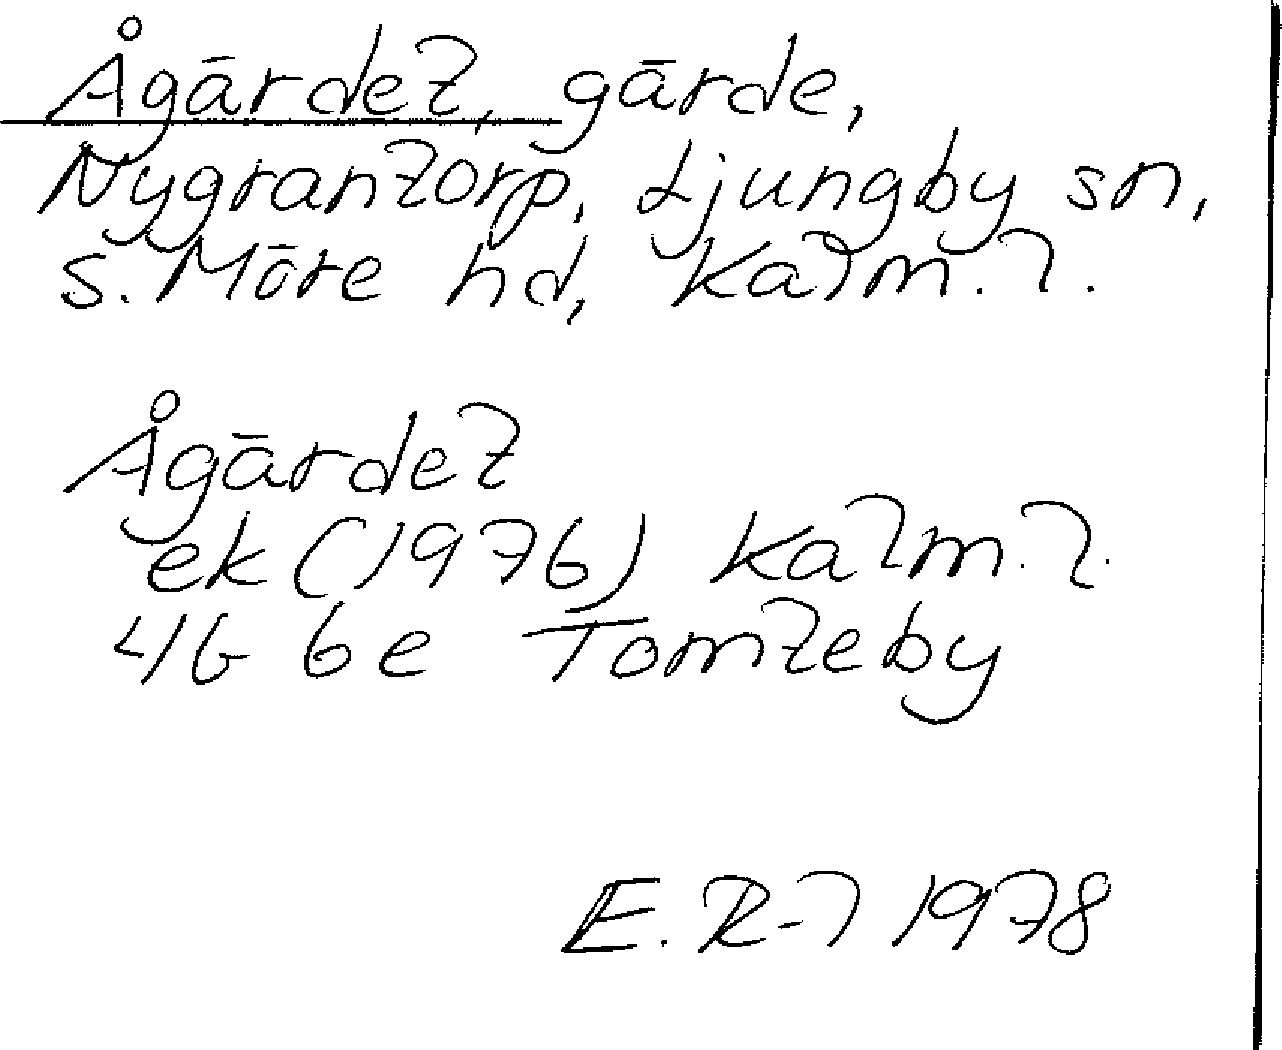 Ågärdet, gärde,
Nygrantorp, Ljungby sn,
S. Möre hd, Kalm. l.
Ågärdet
ek (1976) Kalm. l.
4G 6e Tomteby
E. R-l 1978